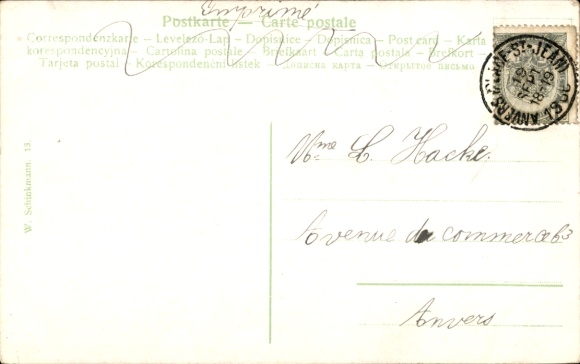 Imprimé
Postkarte — Carte postale
Correspondenzkarte — Levelező-Lap — Dopisnice — Dopisnica — Post card — Karta
korespondencyjna — Cartolina postale — Briefkaart — Carta postala — Brefkort —
Tarjeta postal — Korespondenční listek — Дописна карта — Открытое письмо
ANVERS PLACE-ST-JEAN
18-19
1906
Mme L. Hacke.
Avenue du commerce 63
Anvers
W. Schinkmann. 13.